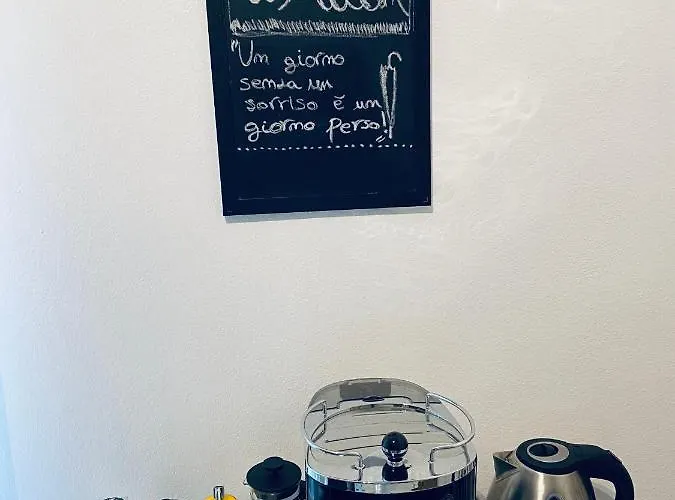 "Un giorno
senza un
sorriso è un
giorno perso!"